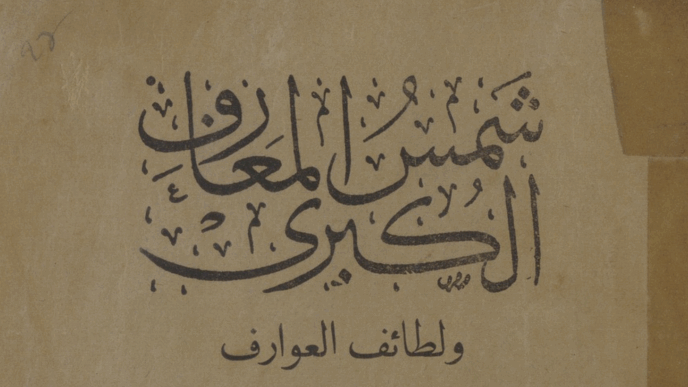 شَمْسُ الْمَعَارِفِ
الكُبْرَى
ولطائف العوارف